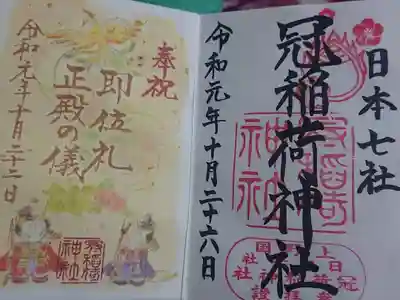 日本七社
冠稲荷神社
令和元年十月二十六日
奉祝
即位礼
正殿の儀
令和元年十月二十二日